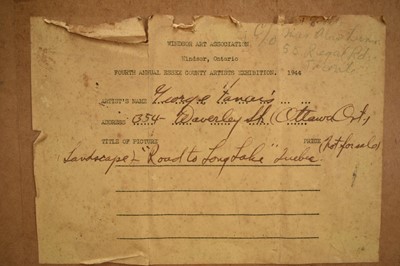 WINDSOR ART ASSOCIATION
Windsor, Ontario
FOURTH ANNUAL ESSEX COUNTY ARTISTS EXHIBITION, 1944
ARTIST'S NAME George
ADDRESS 354 Waverley St. (Ottawa Ont.,
TITLE OF PICTURE PRICE (Not for sale)
Landscape - "Road to Long Lake" Quebec